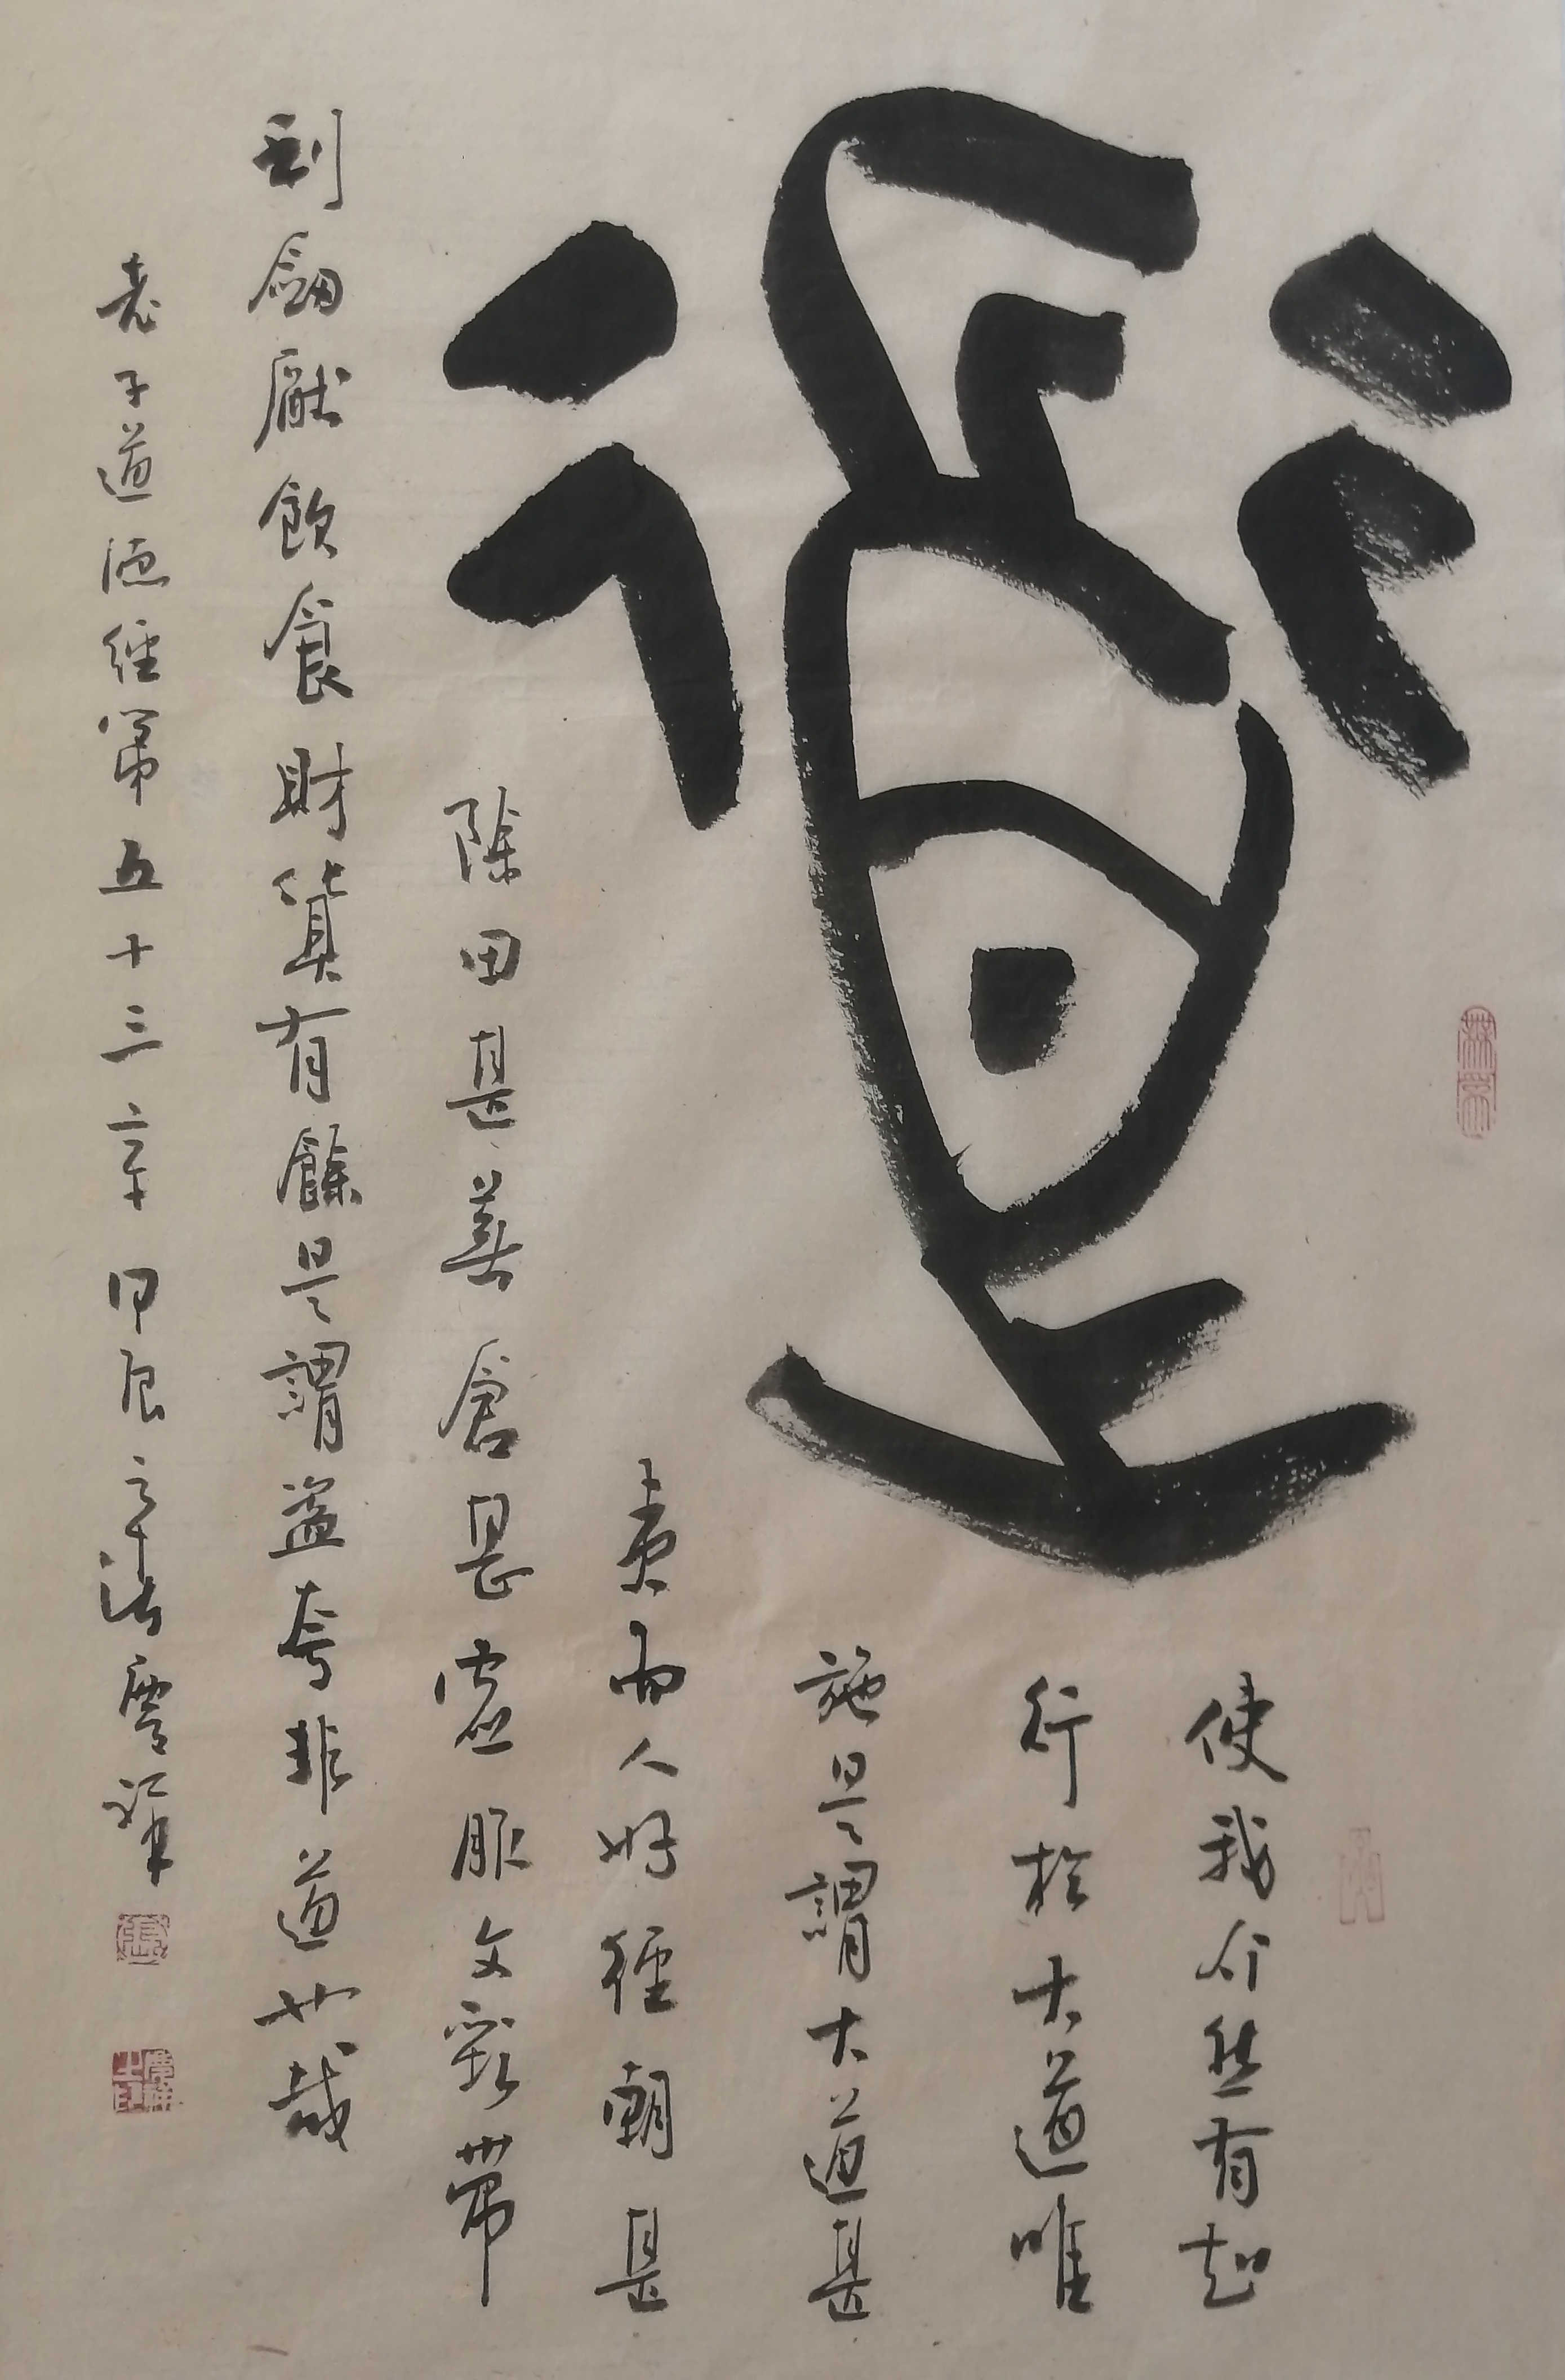 道
使我介然有知
行於大道唯
施是謂大道甚
夷而人好徑朝甚
除田甚蕪倉甚虛服文彩帶
利劍厭飲食財貨有餘是謂盜夸非道也哉
老子道德經第五十三章甲辰之